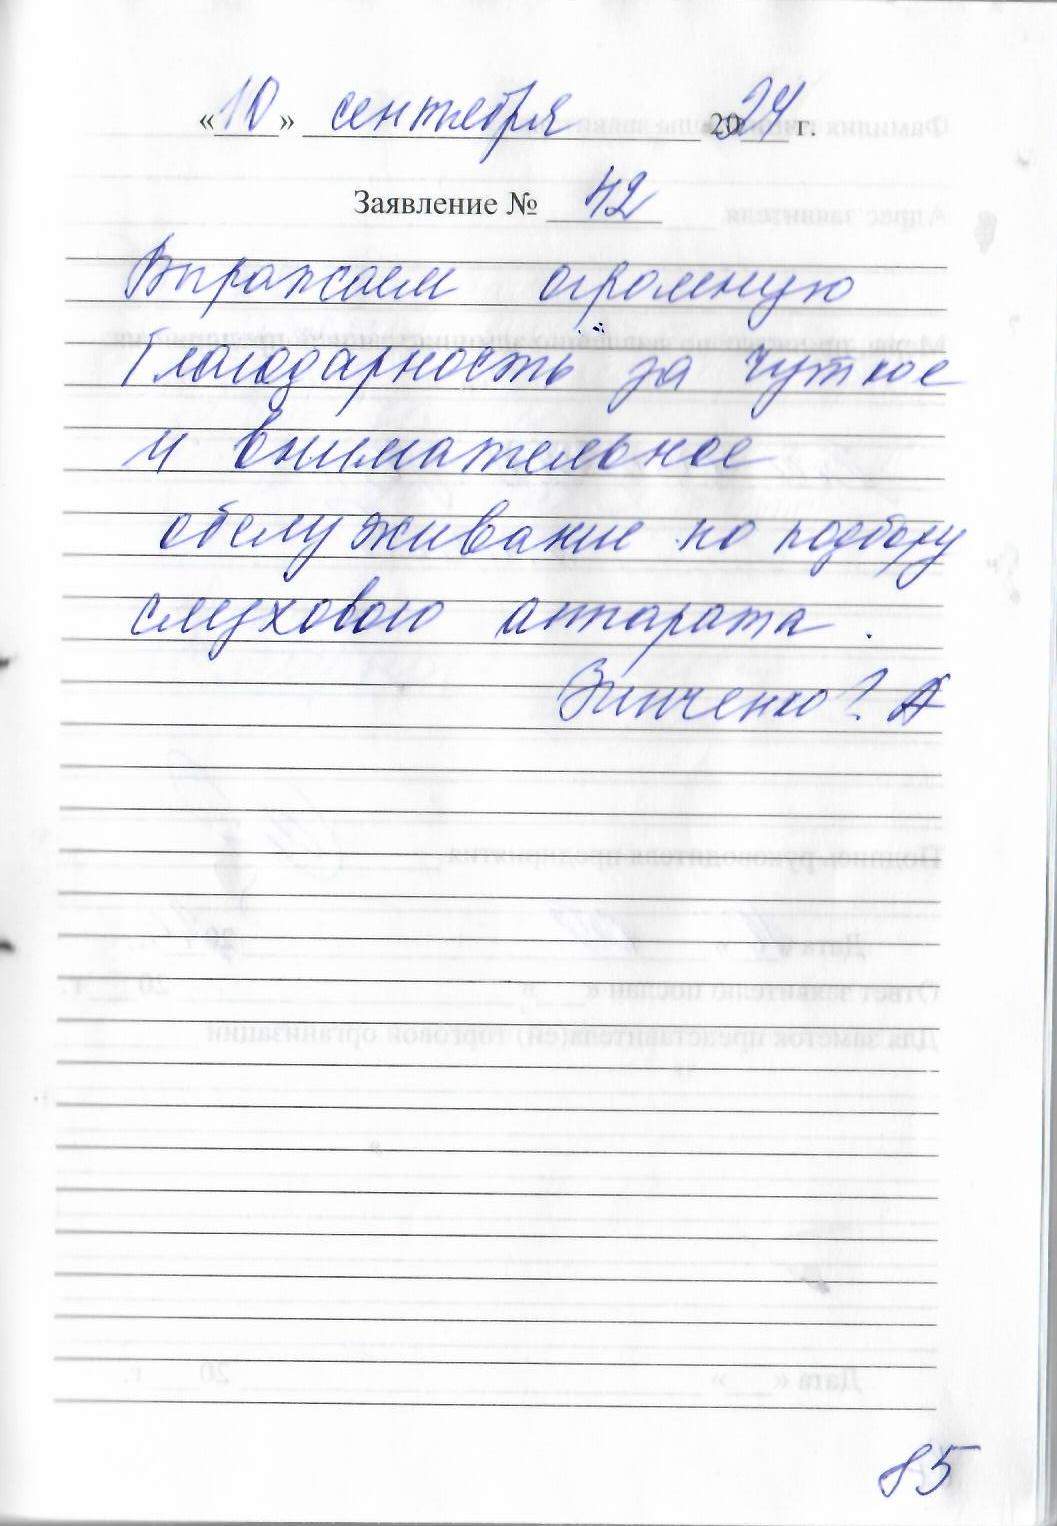 «10» сентября 2024 г.
Заявление № 42
Выражаем огромную
благодарность за чуткое
и внимательное
обслуживание по подбору
слухового аппарата.
Зинченко
85